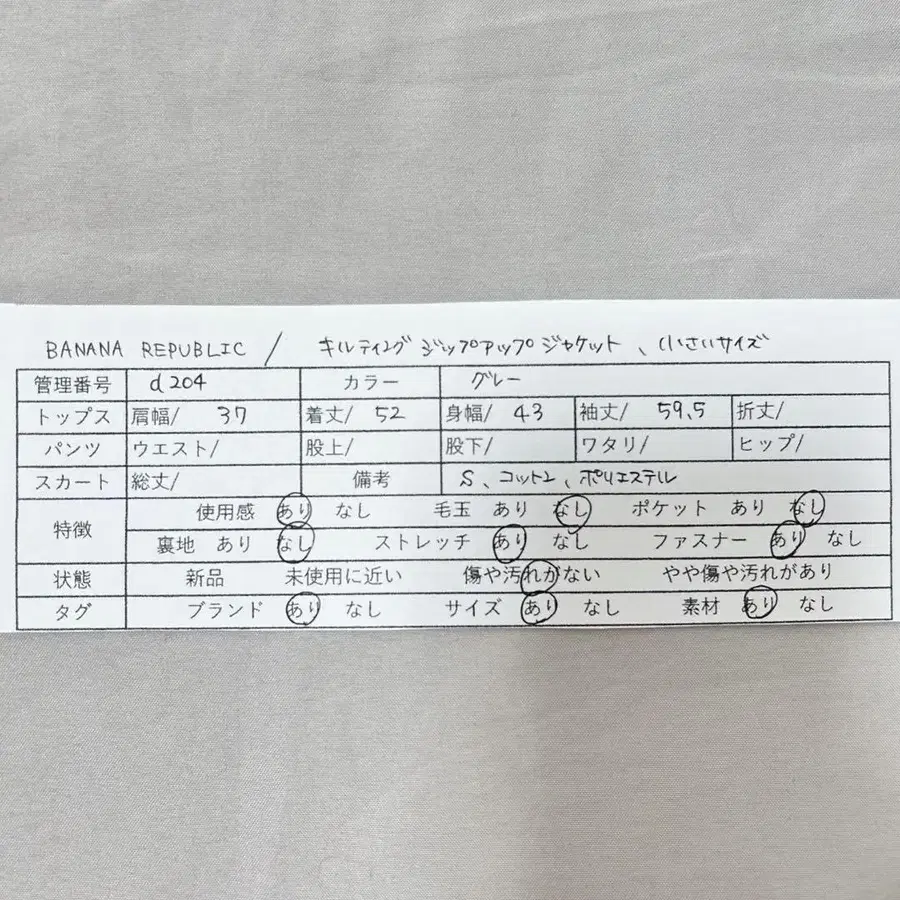 BANANA REPUBLIC / キルティングジップアップジャケット、小さいサイズ
管理番号 d204 カラー グレー
トップス 肩幅/ 37 着丈/ 52 身幅/ 43 袖丈/ 59.5 折丈/
パンツ ウエスト/ 股上/ 股下/ ワタリ/ ヒップ/
スカート 総丈/ 備考 S、コットン、ポリエステル
特徴 使用感 あり なし 毛玉 あり なし ポケット あり なし
裏地 あり なし ストレッチ あり なし ファスナー あり なし
状態 新品 未使用に近い 傷や汚れがない やや傷や汚れがあり
タグ ブランド あり なし サイズ あり なし 素材 あり なし